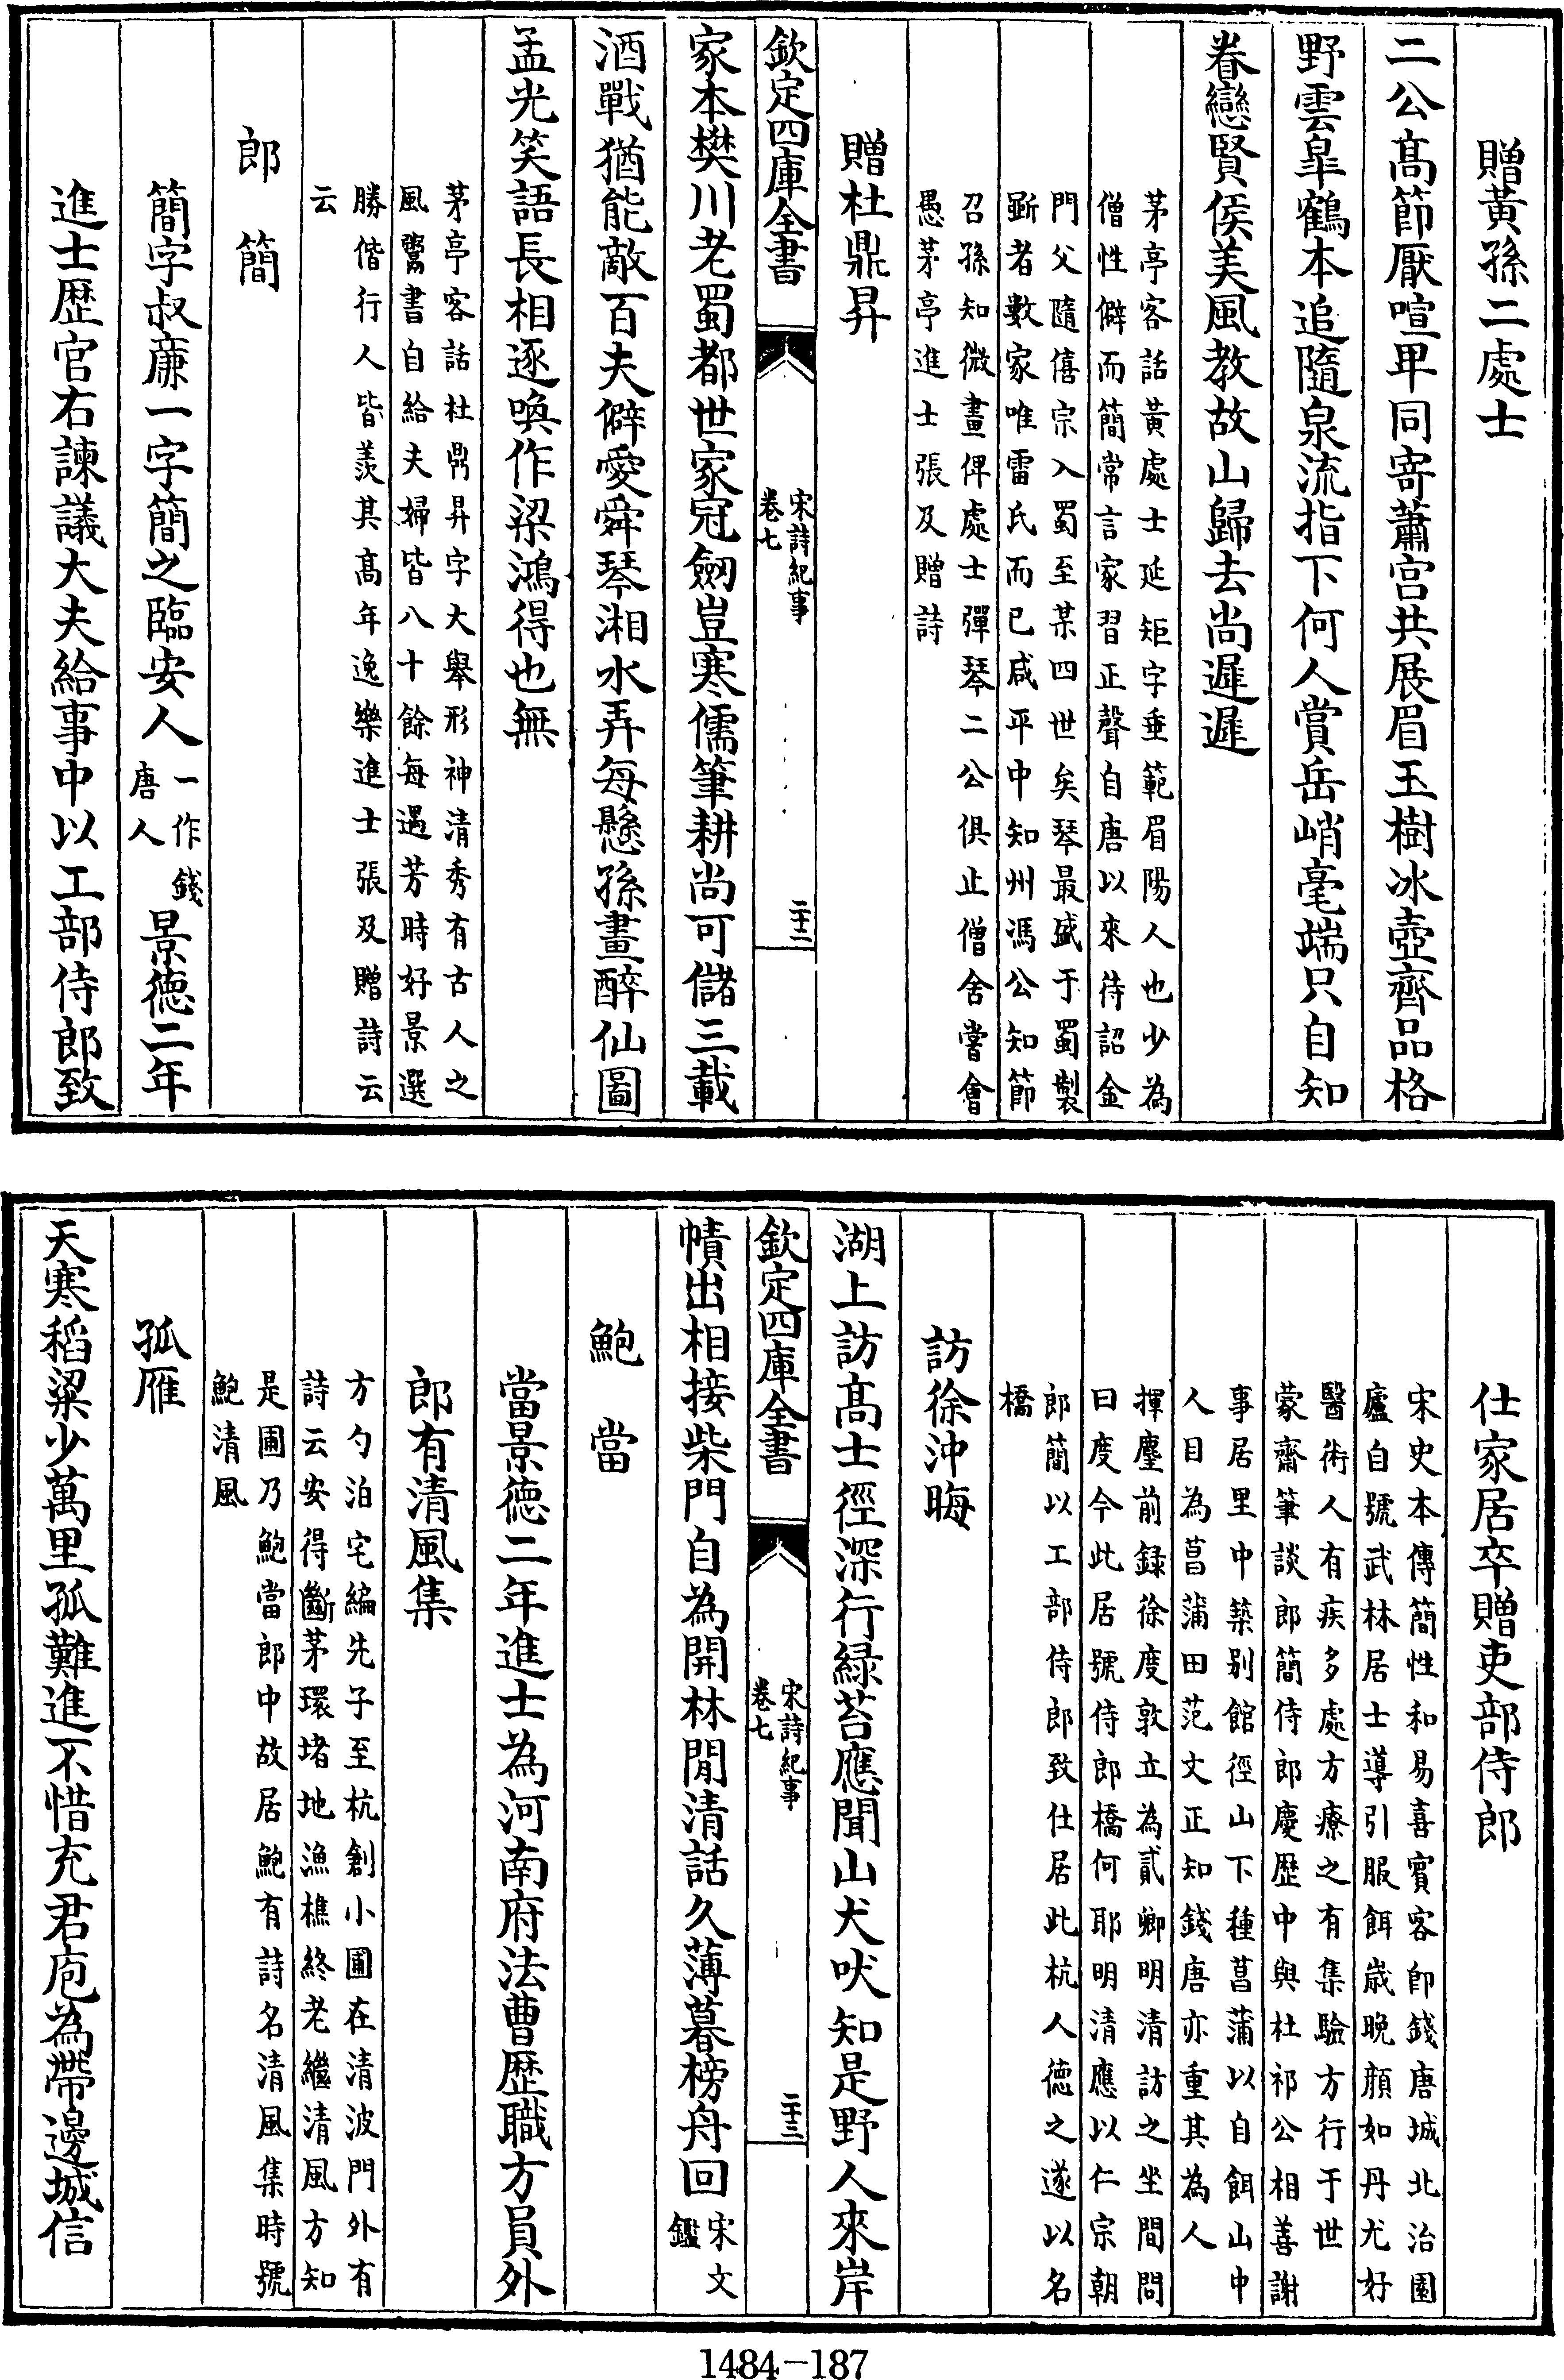 贈黄孫二處士
二公髙節厭喧卑同寄蕭宫共展眉玉樹冰壺齊品格
野雲臯鶴本追隨泉流指下何人賞岳峭毫端只自知
眷戀賢侯美風教故山歸去尚遲遲
茅亭客話黄處士延矩字垂範眉陽人也少為
僧性僻而簡常言家習正聲自唐以來待詔金
門父隨僖宗入蜀至某四世矣琴最盛于蜀製
斵者數家唯雷氏而已咸平中知州馮公知節
召孫知微畫俾處士彈琴二公俱止僧舍嘗會
愚茅亭進士張及贈詩
贈杜鼎昇
欽定四庫全書
宋詩紀事
卷七
二十二
家本樊川老蜀都世家冠劒豈寒儒筆耕尚可儲三載
酒戰猶能敵百夫僻愛舜琴湘水弄每懸孫畫醉仙圖
孟光笑語長相逐喚作梁鴻得也無
茅亭客話杜鼎昇字大舉形神清秀有古人之
風鬻書自給夫婦皆八十餘每遇芳時好景選
勝偕行人皆羨其髙年逸樂進士張及贈詩云
云
郎簡
簡字叔亷一字簡之臨安人一作錢唐人景徳二年
進士歴官右諫議大夫給事中以工部侍郎致
仕家居卒贈吏部侍郎
宋史本傳簡性和易喜賓客即錢唐城北治園
廬自號武林居士導引服餌嵗晚顔如丹尤好
醫術人有疾多處方療之有集驗方行于世
蒙齋筆談郎簡侍郎慶歴中與杜祁公相善謝
事居里中築别館徑山下種菖蒲以自餌山中
人目為菖蒲田范文正知錢唐亦重其為人
揮麈前録徐度敦立為貳卿明清訪之坐間問
曰度今此居號侍郎橋何耶明清應以仁宗朝
郎簡以工部侍郎致仕居此杭人徳之遂以名
橋
訪徐沖晦
湖上訪髙士徑深行緑苔應聞山犬吠知是野人來岸
欽定四庫全書
宋詩紀事
卷七
二十三
幘出相接柴門自為開林閒清話久薄暮榜舟回宋文鑑
鮑當
當景徳二年進士為河南府法曹歴職方員外
郎有清風集
方勺泊宅編先子至杭創小圃在清波門外有
詩云安得斷茅環堵地漁樵終老繼清風方知
是圃乃鮑當郎中故居鮑有詩名清風集時號
鮑清風
孤雁
天寒稻粱少萬里孤難進不惜充君庖為帶邊城信
1484-187